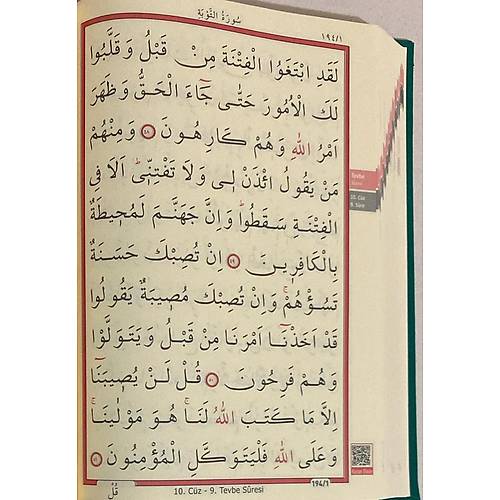 سُورَةُ التَّوْبَةِ
١٩٤/١
لَقَدِ ابْتَغَوُا الْفِتْنَةَ مِنْ قَبْلُ وَقَلَّبُوا
لَكَ الْاُمُورَ حَتّٰى جَٓاءَ الْحَقُّ وَظَهَرَ
اَمْرُ اللّٰهِ وَهُمْ كَارِهُونَ ﴿٤٨﴾ وَمِنْهُمْ
مَنْ يَقُولُ ائْذَنْ لِى وَلَا تَفْتِنّ۪ىۜ اَلَا فِى
الْفِتْنَةِ سَقَطُواۜ وَاِنَّ جَهَنَّمَ لَمُح۪يطَةٌ
بِالْكَافِر۪ينَ ﴿٤٩﴾ اِنْ تُصِبْكَ حَسَنَةٌ
تَسُؤْهُمْۚ وَاِنْ تُصِبْكَ مُص۪يبَةٌ يَقُولُوا
قَدْ اَخَذْنَٓا اَمْرَنَا مِنْ قَبْلُ وَيَتَوَلَّوْا
وَهُمْ فَرِحُونَ ﴿٥٠﴾ قُلْ لَنْ يُص۪يبَنَٓا
اِلَّا مَا كَتَبَ اللّٰهُ لَنَاۚ هُوَ مَوْلٰينَاۚ
وَعَلَى اللّٰهِ فَلْيَتَوَكَّلِ الْمُؤْمِنُونَ ﴿٥١﴾
قُلْ
194/1
10. Cüz - 9. Tevbe Sûresi
Tevbe
Sûresi
10. Cüz
9. Sûre